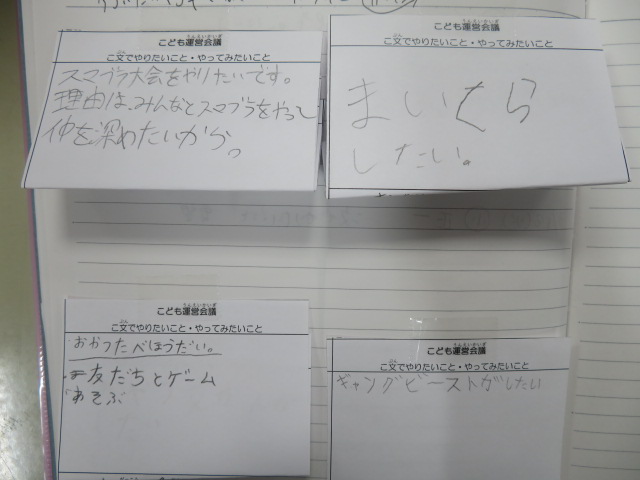 こども運営会議
こ文でやりたいこと・やってみたいこと
スマブラ大会をやりたいです。
理由は、みんなとスマブラをやって
仲を深めたいから。
こども運営会議
こ文でやりたいこと・やってみたいこと
まいくら
したい。
こども運営会議
こ文でやりたいこと・やってみたいこと
おかつたべほうだい。
友だちとゲーム
あそぶ
こども運営会議
こ文でやりたいこと・やってみたいこと
ギャングビーストがしたい